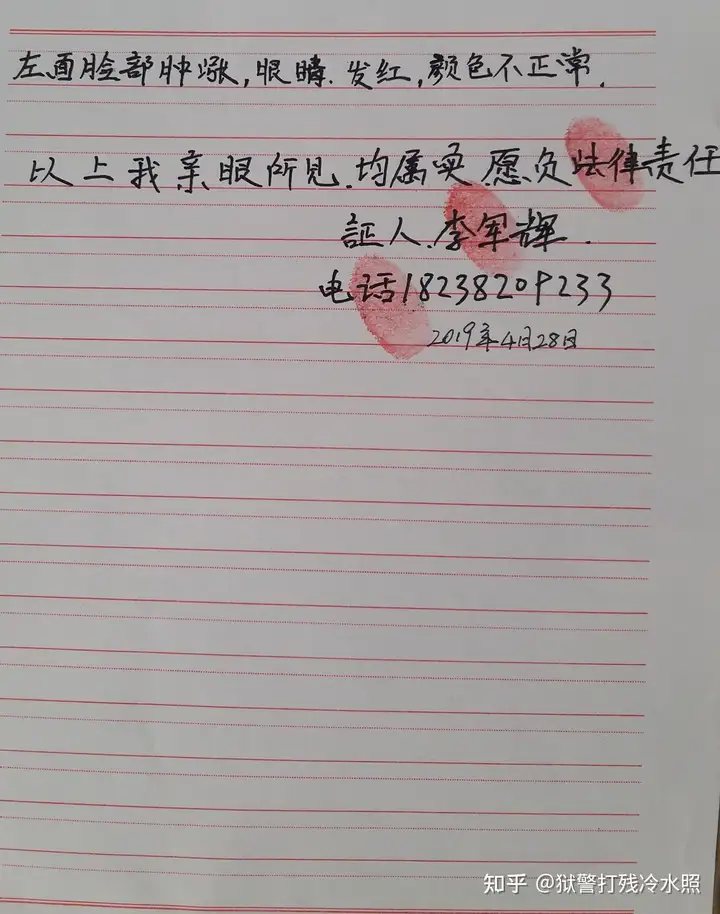 左面脸部肿涨,眼睛.发红,颜色不正常.
以上我亲眼所见.均属实.愿负法律责任
証人.李军辉.
电话18238209233
2019年4月28日
知乎 @狱警打残冷水照